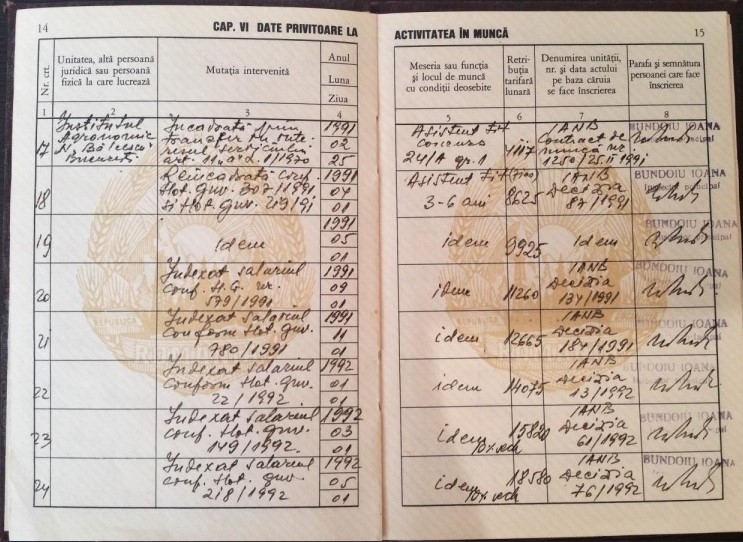 14 CAP. VI DATE PRIVITOARE LA
ACTIVITATEA ÎN MUNCĂ 15
Nr. crt.
Unitatea, altă persoană
juridică sau persoană
fizică la care lucrează
Mutația intervenită
Anul
Luna
Ziua
Meseria sau funcția
și locul de muncă
cu condiții deosebite
Retri-
buția
tarifară
lunară
Denumirea unității,
nr. și data actului
pe baza căruia
se face înscrierea
Parafa și semnătura
persoanei care face
înscrierea
1 2 3 4 5 6 7 8
17
Institutul
Agronomic
N. Bălcescu
București
Încadrată prin
transfer în
serviciului
art. 11 1/1970
1991
02
25
Asistent
24/A gr. 1
4117
IANB
Contract de
muncă nr.
1250/25 II 1991
BUNDOIU IOANA
18
Reîncadrată conf.
Hot. guv. 307/1991
și Hot. guv. 219/91
1991
04
01
Asistent
3-6 ani
8625
IANB
Decizia
87/1991
BUNDOIU IOANA
19
idem
1991
05
01
idem
9925
Idem
BUNDOIU IOANA
20
Indexat salariul
conf. H.G. nr.
579/1991
1991
09
01
idem
11260
IANB
Decizia
134/1991
BUNDOIU IOANA
21
Indexat salariul
conform Hot. guv.
780/1991
1991
11
01
idem
12665
IANB
Decizia
184/1991
BUNDOIU IOANA
22
Indexat salariul
conform Hot. guv.
22/1992
1992
01
01
idem
14075
IANB
Decizia
13/1992
BUNDOIU IOANA
23
Indexat salariul
conf. Hot. guv.
149/1992
1992
03
01
idem
10% vech
15820
IANB
Decizia
61/1992
BUNDOIU IOANA
24
Indexat salariul
conf. Hot. guv.
218/1992
1992
05
01
idem
10% vech
18580
IANB
Decizia
76/1992
BUNDOIU IOANA